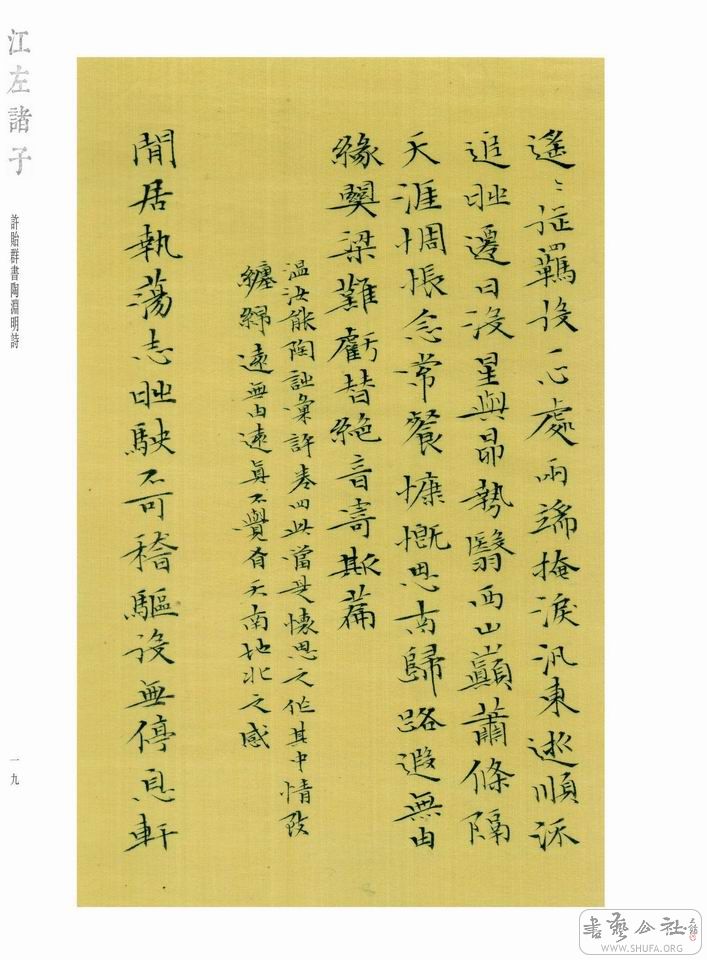 江左諸子
許貽群書陶淵明詩
一九
遙〻從羈役一心處兩端掩淚汎東逝順流
追時遷日沒星與昴勢翳西山巔蕭條隔
天涯惆悵念常餐慷慨思南歸路遐無由
緣關梁難虧替絕音寄斯篇
温汝能陶詩彙評卷四此當是懷思之作其中情致
纏綿遠無由達真不覺有天南地北之感
閒居執蕩志時駛不可稽驅役無停息軒
書藝公社
WWW.SHUFA.ORG